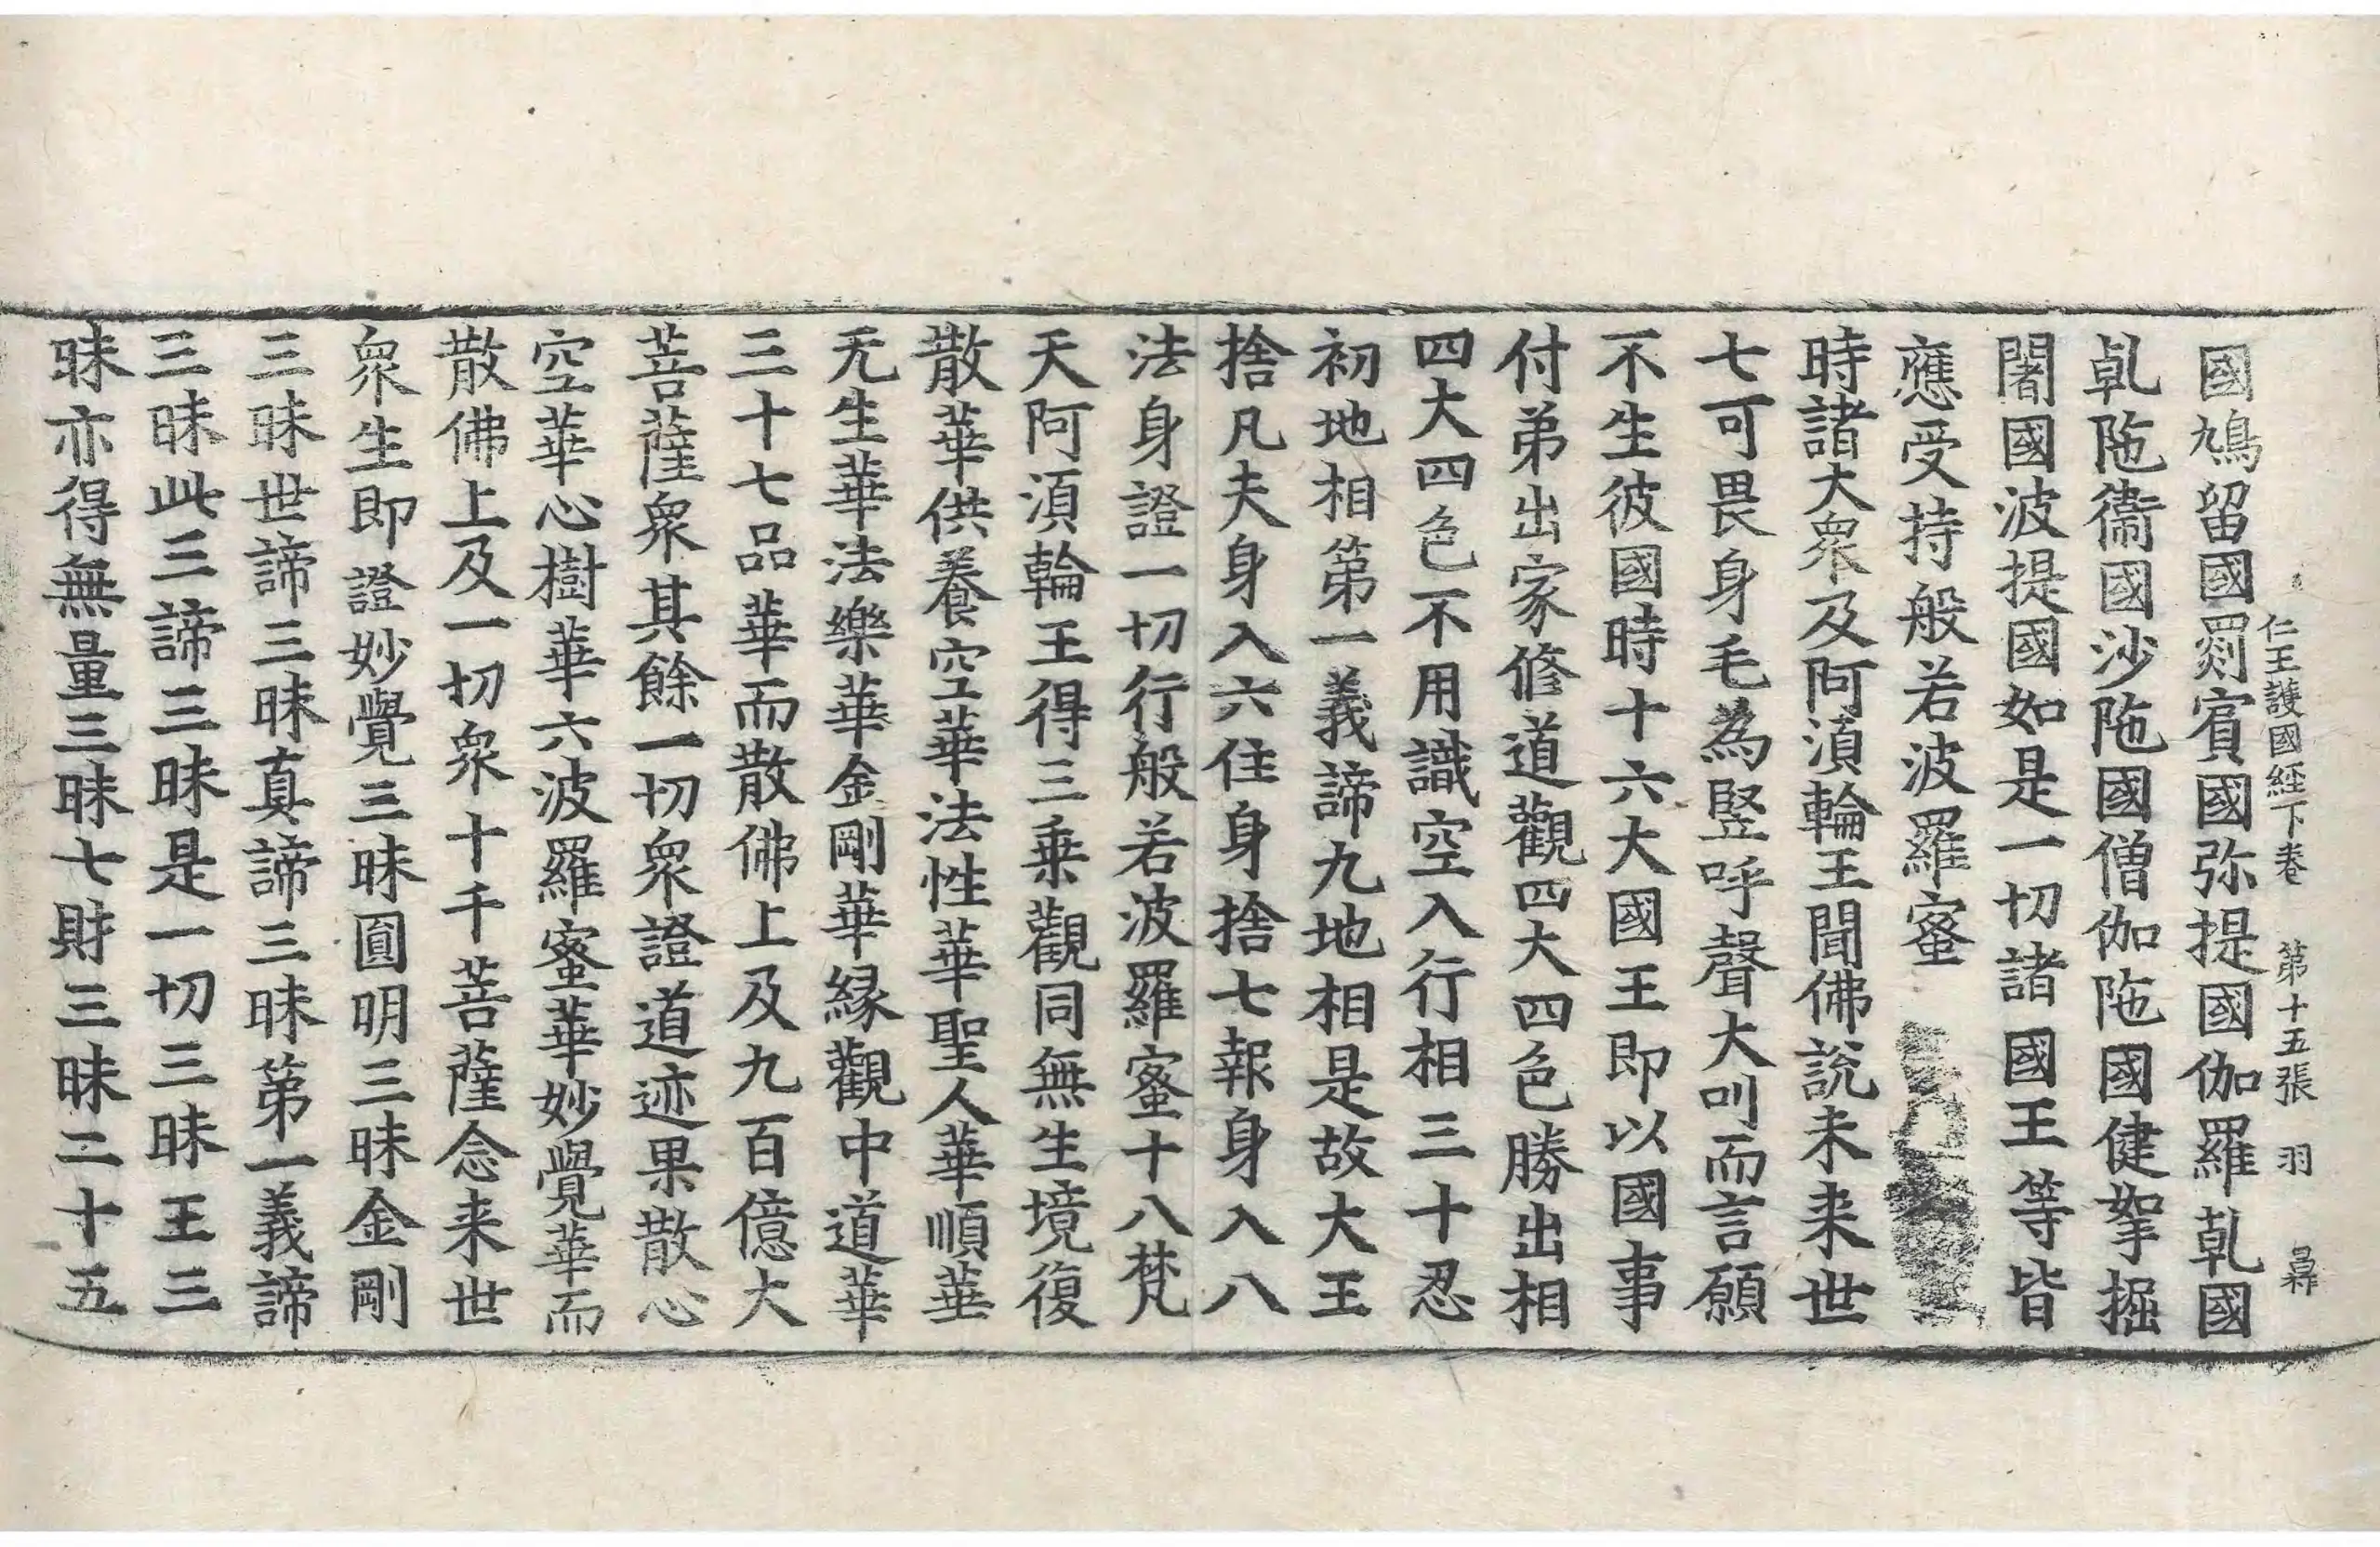 仁王護國経下卷 第十五張 羽
國鳩留國罽賓國弥提國伽羅乹國
乹陁衞國沙陁國僧伽陁國健拏掘
闍國波提國如是一切諸國王等皆
應受持般若波羅蜜
時諸大衆及阿湏輪王聞佛說未来世
七可畏身毛為竪呼聲大叫而言願
不生彼國時十六大國王即以國事
付弟出家修道觀四大四色勝出相
四大四色不用識空入行相三十忍
初地相第一義諦九地相是故大王
捨凡夫身入六住身捨七報身入八
法身證一切行般若波羅蜜十八梵
天阿湏輪王得三乗觀同無生境復
散華供養空華法性華聖人華順華
无生華法樂華金剛華縁觀中道華
三十七品華而散佛上及九百億大
菩薩衆其餘一切衆證道迹果散心
空華心樹華六波羅蜜華妙覺華而
散佛上及一切衆十千菩薩念来世
衆生即證妙覺三昧圓明三昧金剛
三昧世諦三昧真諦三昧第一義諦
三昧此三諦三昧是一切三昧王三
昧亦得無量三昧七財三昧二十五